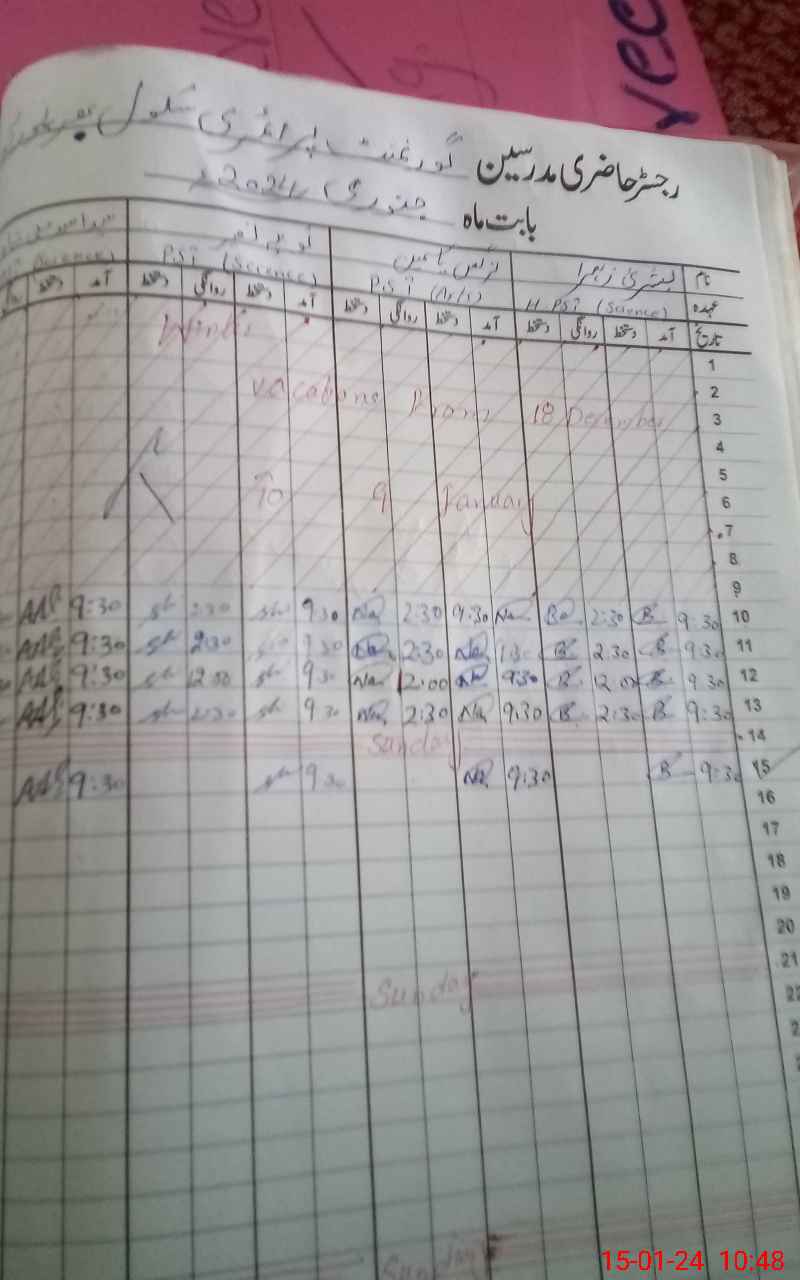 رجسٹر حاضری مدرسین گورنمنٹ پرائمری سکول
بابت ماہ جنوری 2024ء
نام بشریٰ زہرا نرگس یاسمین
عہدہ H.PST (Science) P.S.T (Arts) P.S.T (Science)
تاریخ آمد دستخط روانگی دستخط آمد دستخط روانگی دستخط آمد دستخط روانگی دستخط آمد دستخط
1
2
3
4
5
6
7
8
9
Winter
vacations From 18 December
To 9 January
10 9:30 B 2:30 Ba Na 9:30 2:30 Na 9:30 sh 2:30 sh 9:30 AAS
11 9:30 B 2:30 B 1:30 Na 2:30 Na 9:30 sh 2:30 sh 9:30 AAS
12 9:30 B 12:00 B 9:30 Na 12:00 Na 9:30 sh 12:00 sh 9:30 AAS
13 9:30 B 2:30 B 9:30 Na 2:30 Na 9:30 sh 2:30 sh 9:30 AAS
14 Sunday
15 9:30 B 9:30 Na 9:30 sh 9:30 AAS
16
17
18
19
20
21 Sunday
22
Sunday
15-01-24 10:48